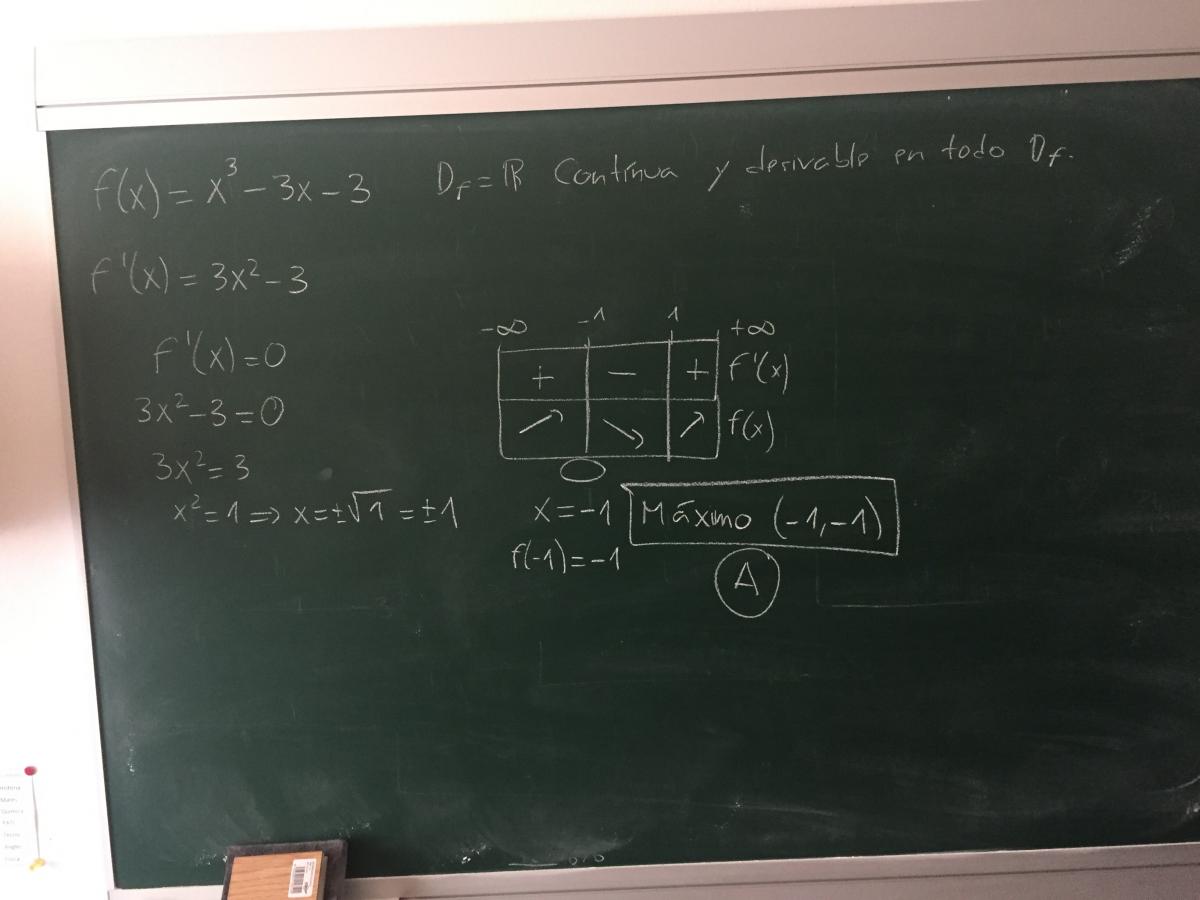 f(x) = x³ - 3x - 3 D_f = ℝ Contínua y derivable en todo D_f.
f'(x) = 3x² - 3
f'(x) = 0
3x² - 3 = 0
3x² = 3
x² = 1 ⇒ x = ±√1 = ±1
-∞ -1 1 +∞
+ - + f'(x)
↗ ↘ ↗ f(x)
x = -1 Máximo (-1, -1)
f(-1) = -1
A